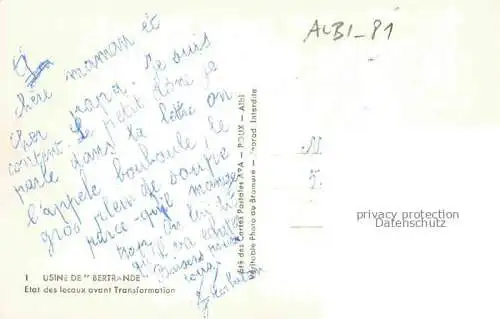 ALBI_81
Chère maman et
cher papa. Je suis
content. Le petit dont je
parle dans la lettre on
l'appele bouboule, le
gros plein de soupe
parce-qu'il mange
trop. On lui dit
qu'il va
Baisers
M
J.
privacy protection
Datenschutz
Sté des Cartes Postales APA — POUX — Albi
Véritable Photo au Bromure — Reprod. Interdite
1 USINE DE "BERTRANDE"
Etat des locaux avant Transformation